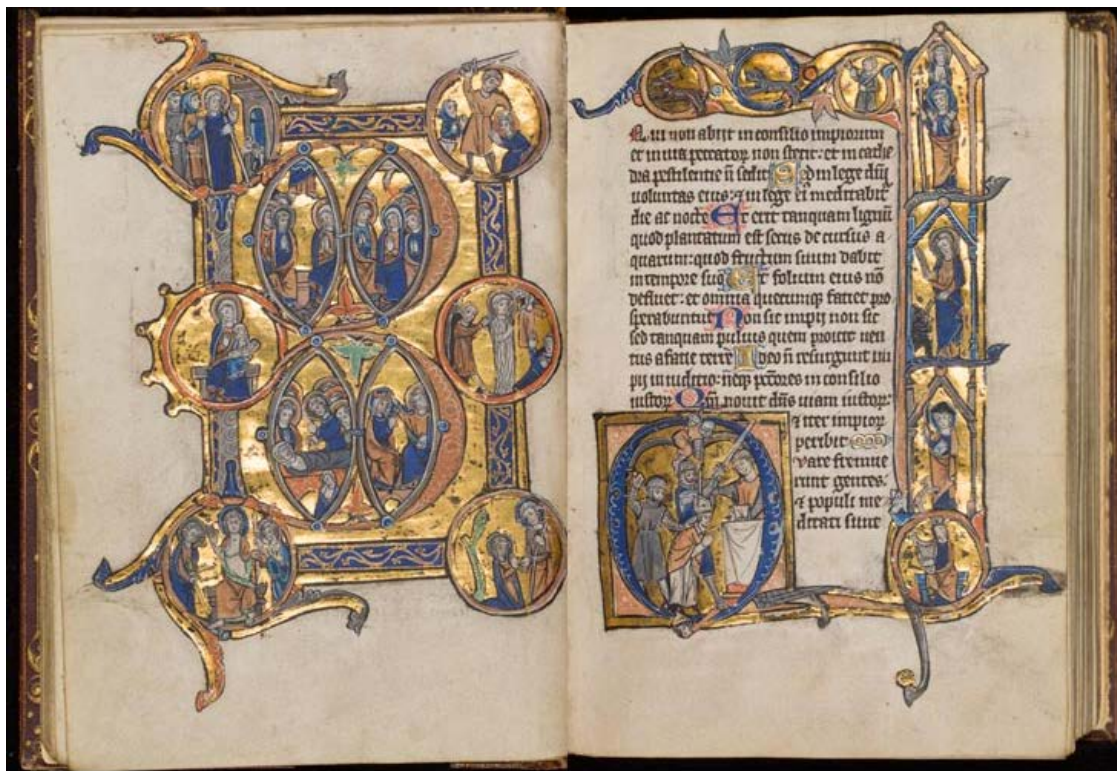 non abiit in consilio impiorum
et in uia peccatoꝝ non stetit: et in cathe
dra pestilentie ñ sedit Sed in lege dñi
uoluntas eius: ⁊ in lege ei meditabit̉
die ac nocte Et erit tanquam lignũ
quod plantatum est secus decursus a
quarum: quod fructum suum dabit
in tempore suo Et folium eius nõ
defluet: et omnia quecunqꝫ faciet pro
sperabuntur Non sic impij non sic
sed tanquam puluis quem proicit uen
tus a facie terre Ideo ñ resurgunt im
pij in iuditio: neqꝫ pctõres in consilio
iustoꝝ Qm̃ nouit dñs uiam iustoꝝ:
⁊ iter impioꝝ
peribit
vare fremue
runt gentes:
⁊ populi me
ditati sunt